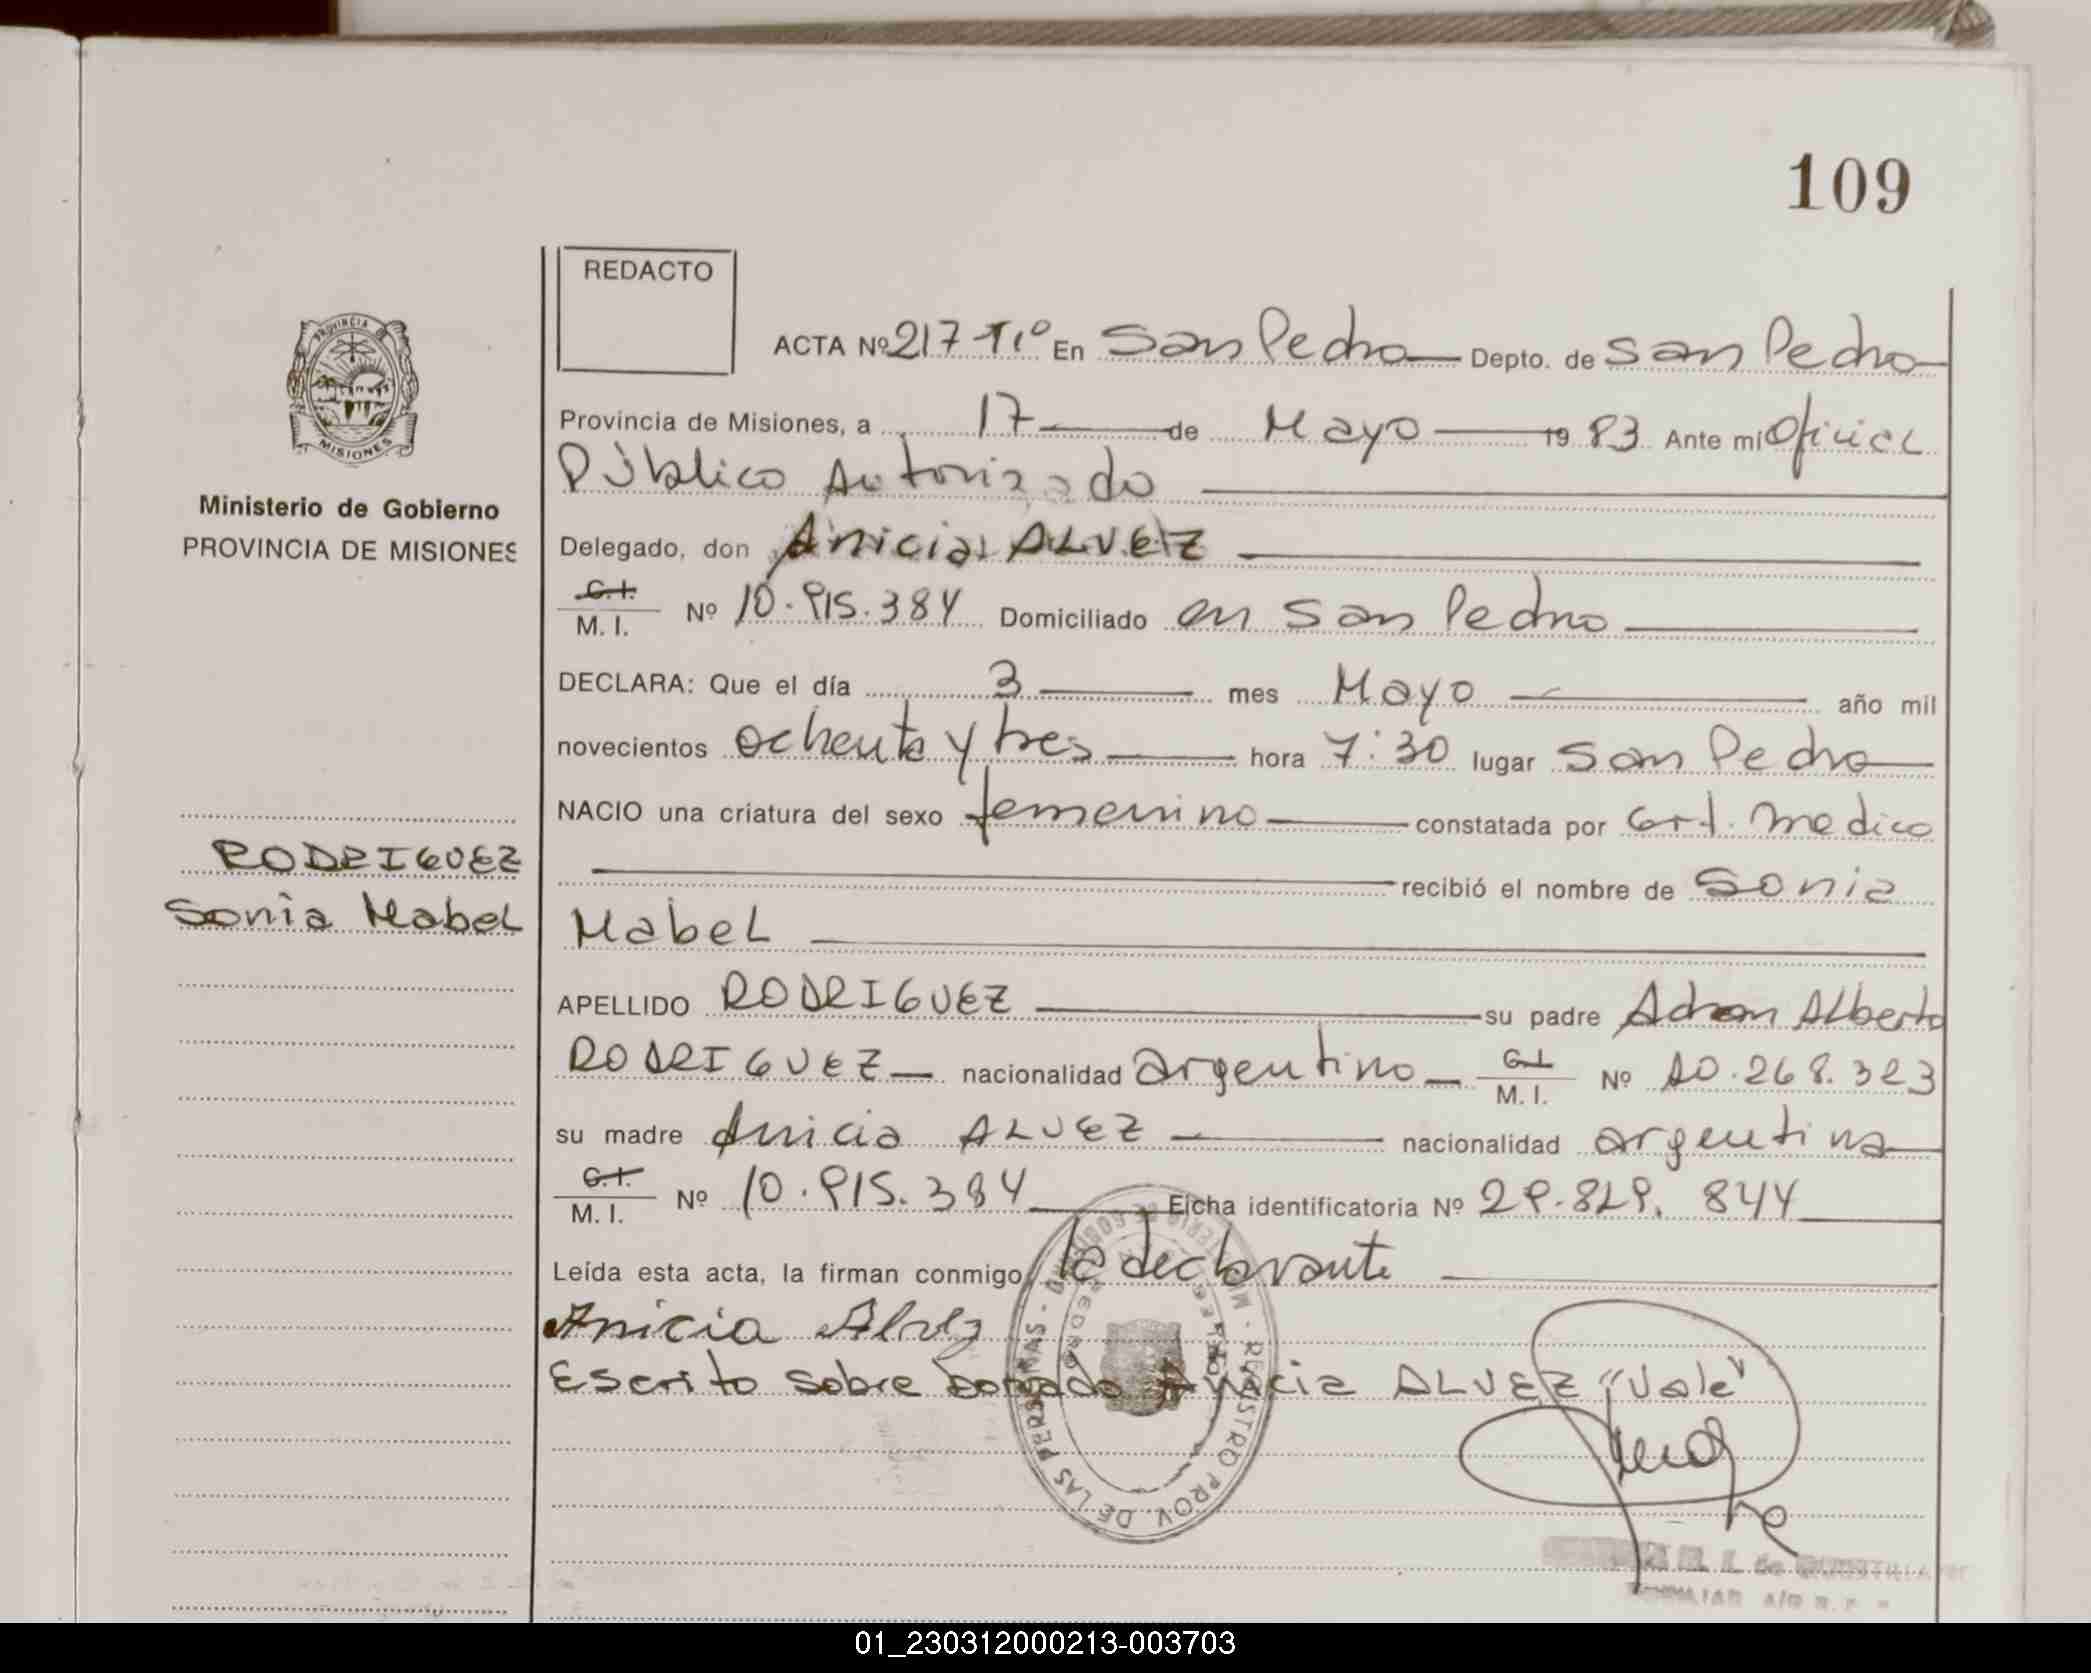 109
REDACTO
ACTA Nº 217 Tº En San Pedro Depto. de San Pedro
Provincia de Misiones, a 17 de Mayo 1983 Ante mi Oficial
Público Autorizado
Delegado, don Anicia ALVEZ
C.I. M. I. Nº 10.915.384 Domiciliado en San Pedro
DECLARA: Que el día 3 mes Mayo año mil
novecientos ochenta y tres hora 7:30 lugar San Pedro
NACIO una criatura del sexo femenino constatada por Cert. medico
recibió el nombre de Sonia
Mabel
APELLIDO RODRIGUEZ su padre Adran Alberto
RODRIGUEZ nacionalidad argentino C.I. M. I. Nº 10.268.323
su madre Anicia ALVEZ nacionalidad argentina
C.I. M. I. Nº 10.915.384 Ficha identificatoria Nº 29.829.844
Leída esta acta, la firman conmigo la declarante
Anicia Alvez
Escrito sobre borrado Anicia ALVEZ "Vale"
PROVINCIA
MISIONES
Ministerio de Gobierno
PROVINCIA DE MISIONES
RODRIGUEZ
Sonia Mabel
MINISTERIO DE GOBIERNO - REGISTRO PROV. DE LAS PERSONAS
01_230312000213-003703